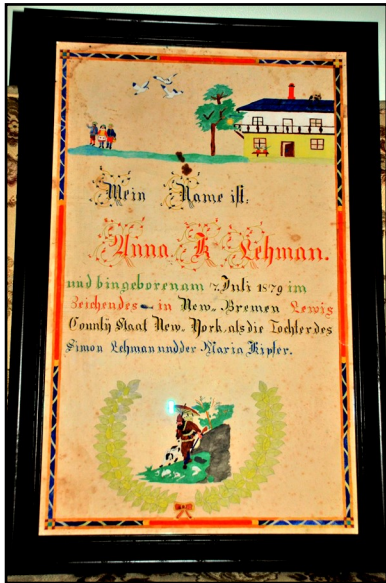 Mein Name ist:
Anna K Lehman.
und bin geboren am 7. Juli 1879 im
Zeichen des in New Bremen Lewis
County Staat New York, als die Tochter des
Simon Lehman und der Maria Kipfer.